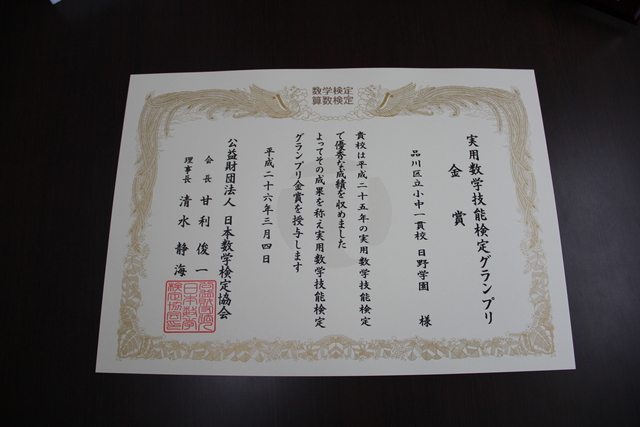 数学検定
算数検定
実用数学技能検定グランプリ
金賞
品川区立小中一貫校 日野学園 様
貴校は平成二十五年の実用数学技能検定
で優秀な成績を収めました
よってその成果を称え実用数学技能検定
グランプリ金賞を授与します
平成二十六年三月四日
公益財団法人 日本数学検定協会
会長 甘利俊一
理事長 清水静海